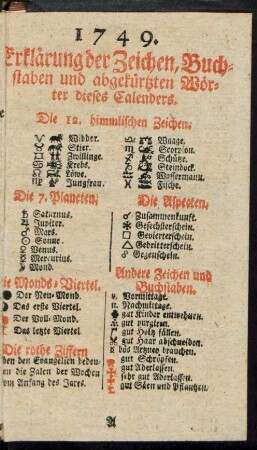 1749.
Erklärung der Zeichen, Buch-
staben und abgekürtzten Wör-
ter dieses Calenders.
Die 12. himmlischen Zeichen.
♈ Widder.
♉ Stier.
♊ Zwillinge.
♋ Krebs.
♌ Löwe.
♍ Jungfrau.
♎ Waage.
♏ Scorpion.
♐ Schütze.
♑ Steinbock.
♒ Wassermann.
♓ Fische.
Die 7. Planeten.
♄ Saturnus.
♃ Jupiter.
♂ Mars.
☉ Sonne.
♀ Venus.
☿ Mercurius.
☽ Mond.
Die Aspecten.
☌ Zusammenkunft.
⚹ Gesechsterschein.
□ Gevierterschein.
△ Gedritterschein.
☍ Gegenschein.
ie Monds-Viertel.
Der Neu-Mond.
Das erste Viertel.
Der Voll-Mond.
Das letzte Viertel
Die rothe Ziffern
ben den Evangelien bedeu-
en die Zalen der Wochen
om Anfang des Jares.
Andere Zeichen und
Buchstaben.
v. Vormittage.
n. Nachmittage.
gut Kinder entwehnen.
gut purgiren.
gut Holtz fällen.
gut Haar abschneiden.
das Artzney brauchen.
gut Schröpfen.
gut Aderlassen.
sehr gut Aderlassen.
gut Säen und Pflantzen.
A